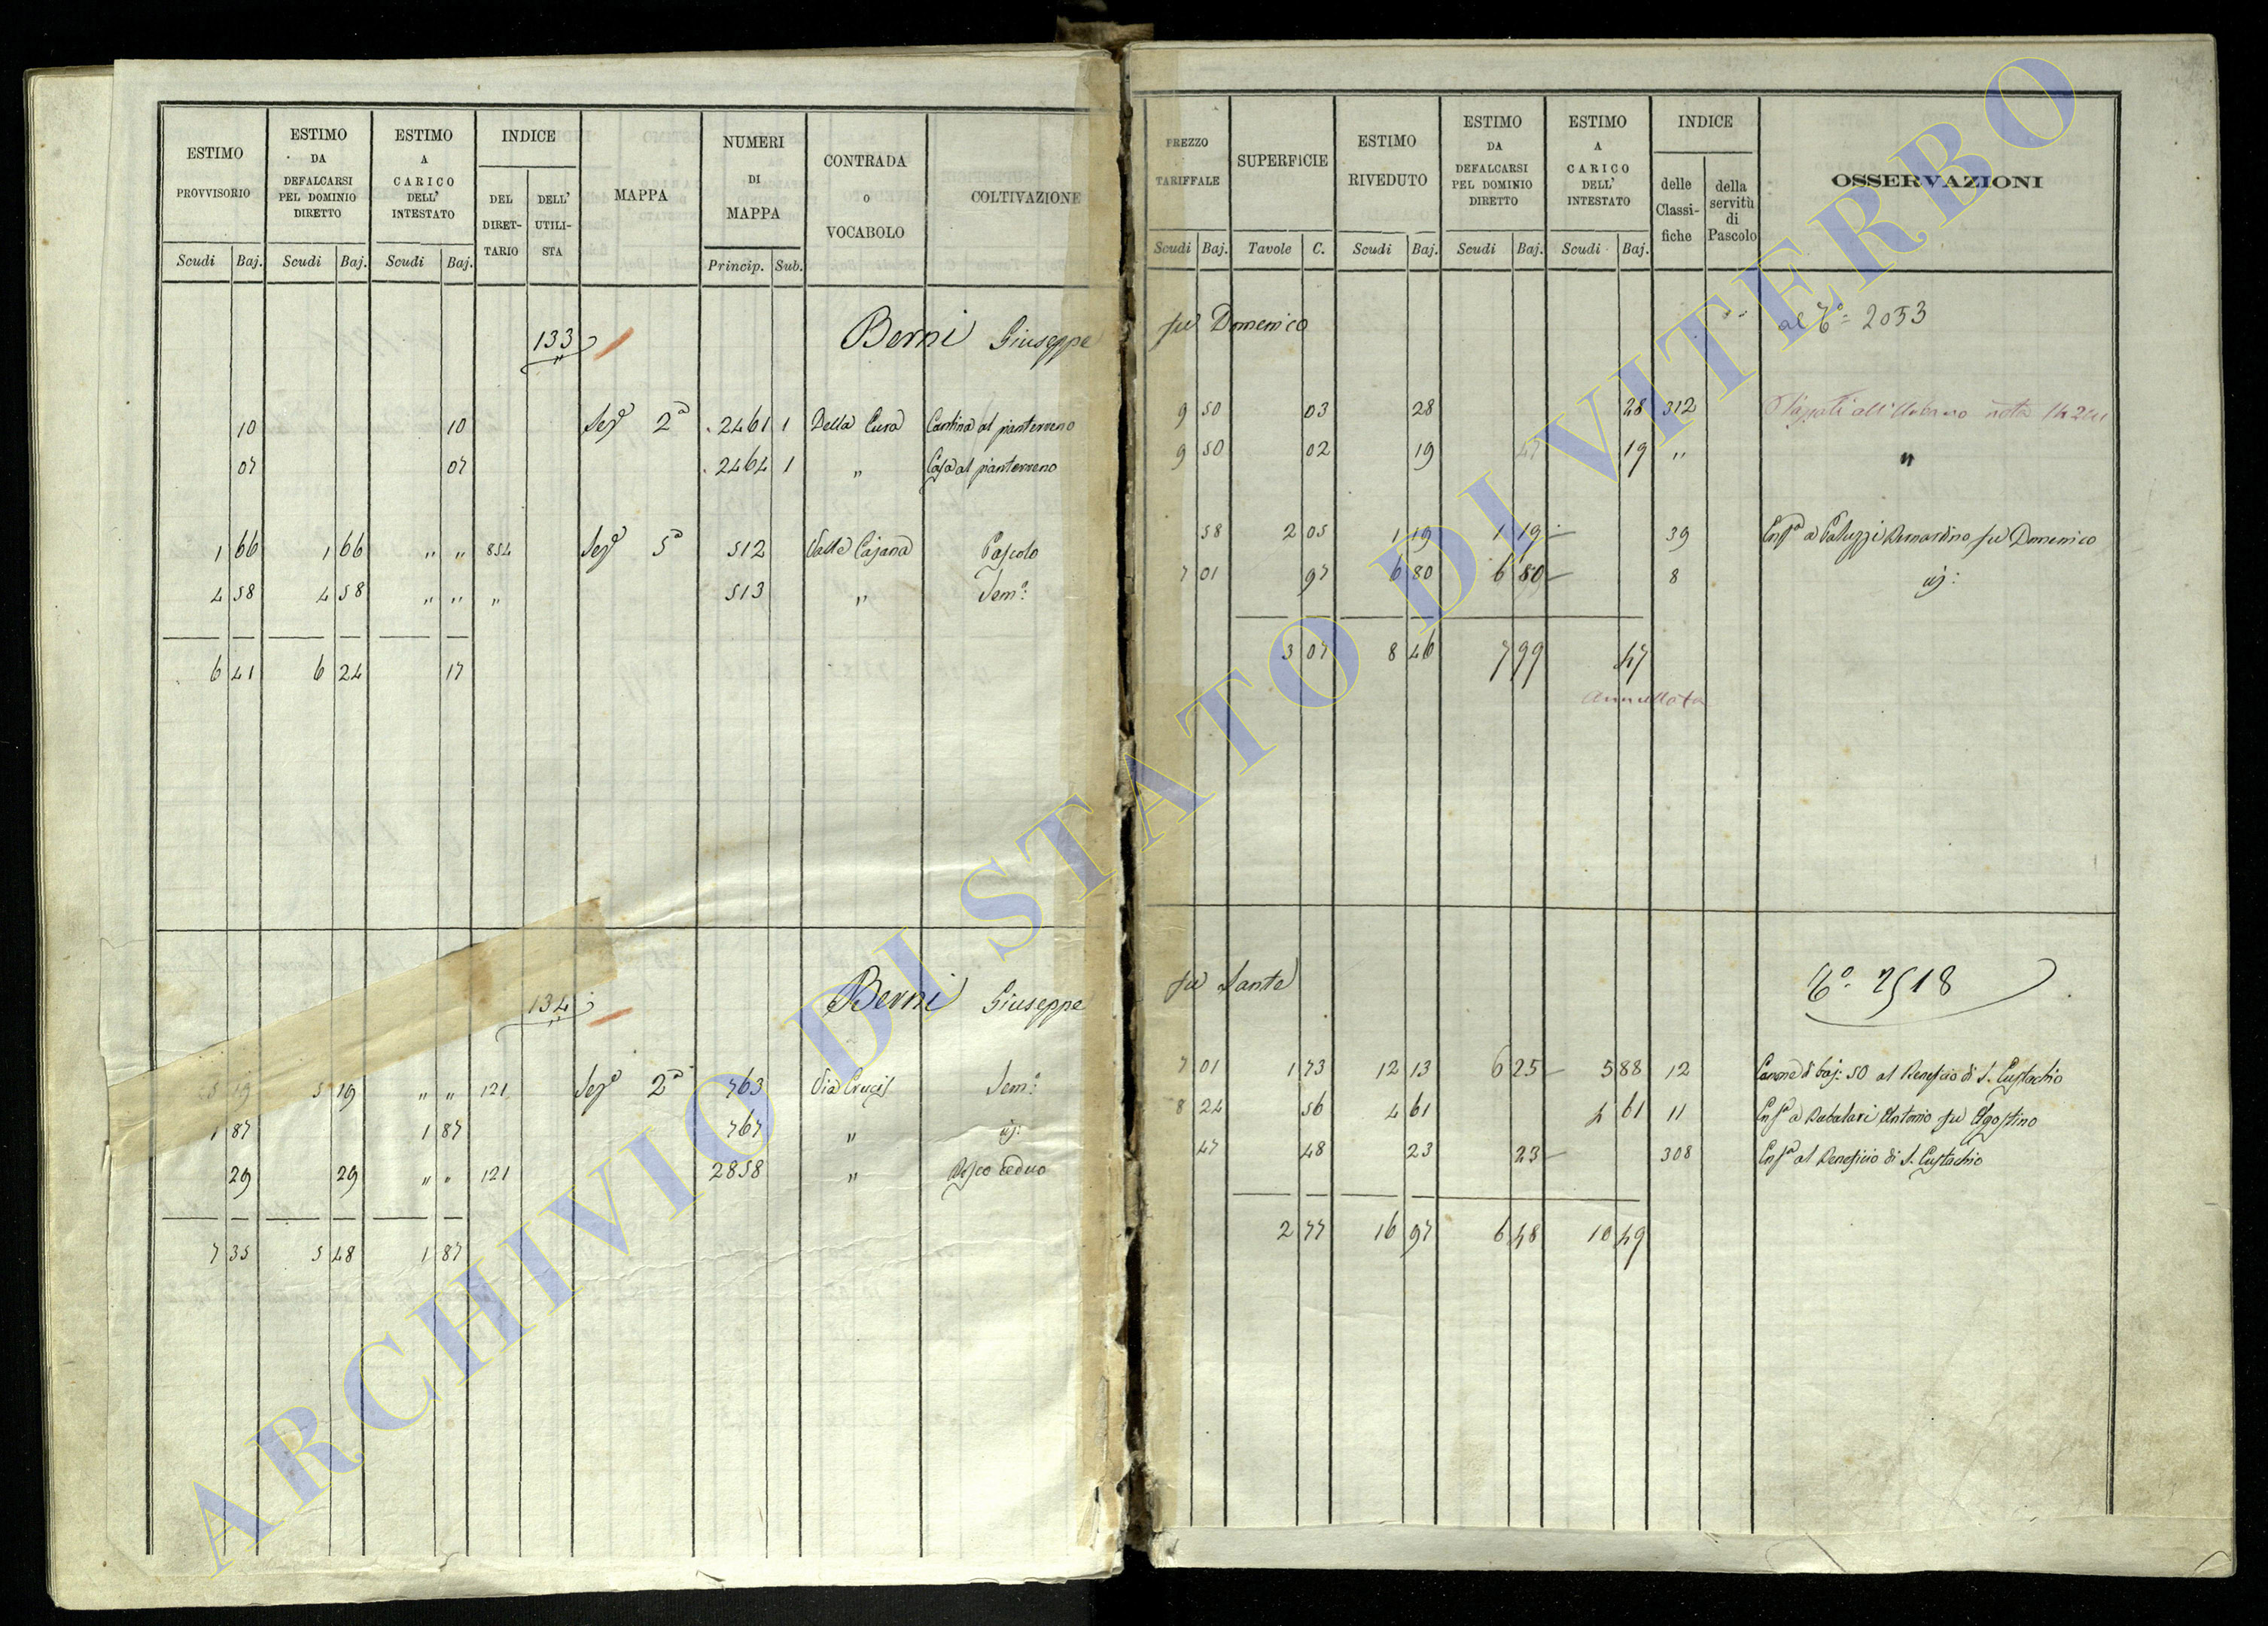 ESTIMO PROVVISORIO
ESTIMO DA DEFALCARSI PEL DOMINIO DIRETTO
ESTIMO A CARICO DELL' INTESTATO
INDICE
DEL DIRET-TARIO
DELL' UTILI-STA
MAPPA
NUMERI DI MAPPA
CONTRADA o VOCABOLO
COLTIVAZIONE
PREZZO TARIFFALE
SUPERFICIE
ESTIMO RIVEDUTO
ESTIMO DA DEFALCARSI PEL DOMINIO DIRETTO
ESTIMO A CARICO DELL' INTESTATO
INDICE
delle Classi-fiche
della servitù di Pascolo
OSSERVAZIONI
Scudi Baj. Scudi Baj. Scudi Baj. Princip. Sub. Scudi Baj. Tavole C. Scudi Baj. Scudi Baj. Scudi Baj.
133 Berni Giuseppe fu Domenico al 2053
10 10 Sez 2a 2461 1 Della Cura Cantina al pianterreno 9 50 03 28 28 312
07 07 2464 1 " Casa al pianterreno 9 50 02 19 19 " "
1 66 1 66 " " 854 Sez 5a 512 Valle Cajana Pascolo 58 2 05 1 19 1 19 — 39 Enfa a Paluzzi Bernardino fu Domenico
4 58 4 58 " " " 513 " Sem: 7 01 97 6 80 6 80 — 8
6 41 6 24 17 3 07 8 46 7 99 47
Annullata
134 Berni Giuseppe fu Sante No 2518
5 19 5 19 " " 121 Sez 2a 763 Via Crucis Sem: 7 01 1 73 12 13 6 25 — 5 88 12 Canone di baj: 50 al Beneficio di S. Eustachio
1 87 1 87 767 " 8 24 56 4 61 4 61 11 Enfa a Antonio fu Agostino
29 29 " " 121 2858 " Bosco ceduo 47 48 23 23 — 308 Enfa al Beneficio di S. Eustachio
7 35 5 48 1 87 2 77 16 97 6 48 10 49
ARCHIVIO DI STATO DI VITERBO